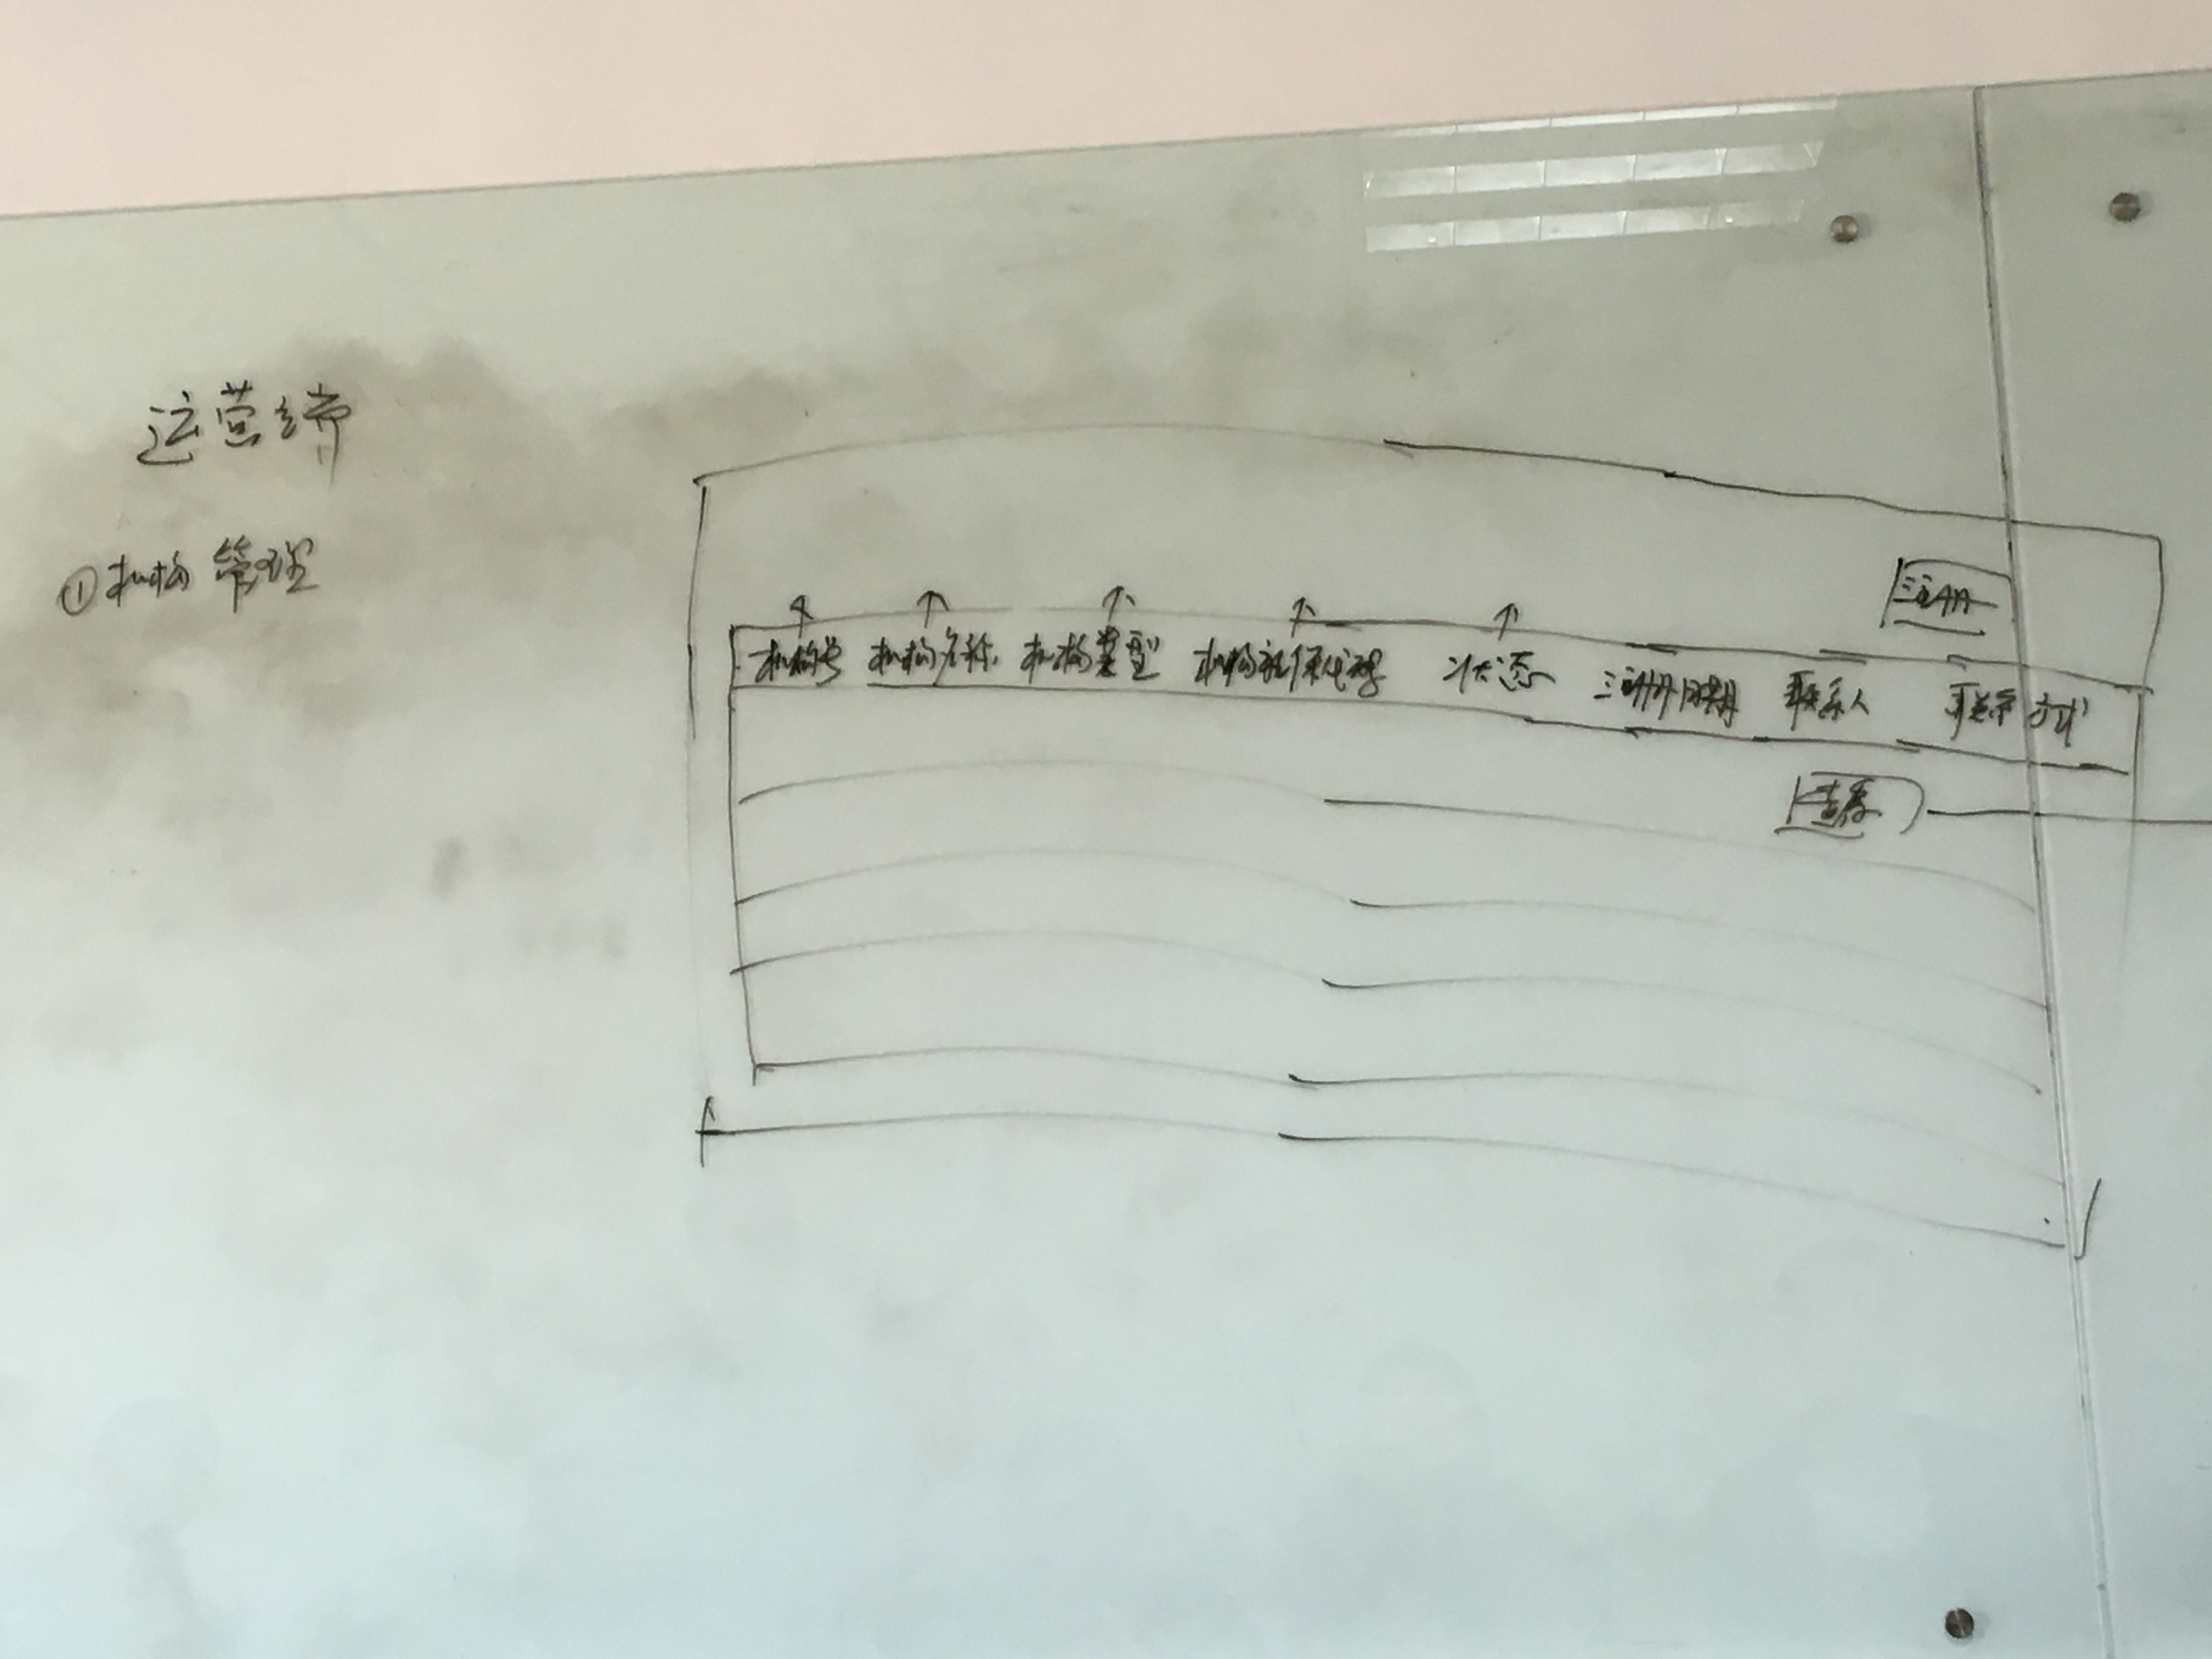 运营端
①机构管理
注册
机构号 机构名称 机构类型 机构社保代码 状态 注册日期 联系人 联系方式
查看